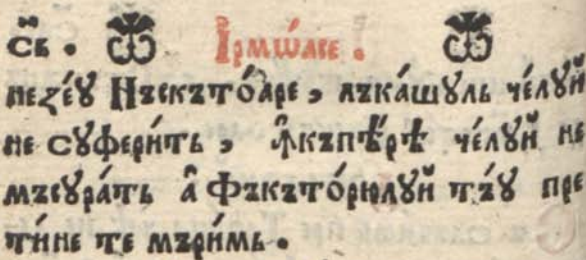 с҃в . Їрмѡ́лѡе .
незе́ꙋ Нъскъто́аре , лъка́шꙋль че́лꙋй
не сꙋфери́ть , ꙟ҆къпѣ́рѣ че́лꙋй не
мъсꙋра́ть а҆ Фъкъто́рюлꙋй тъ́ꙋ пре
ти́не те мъри́мь .